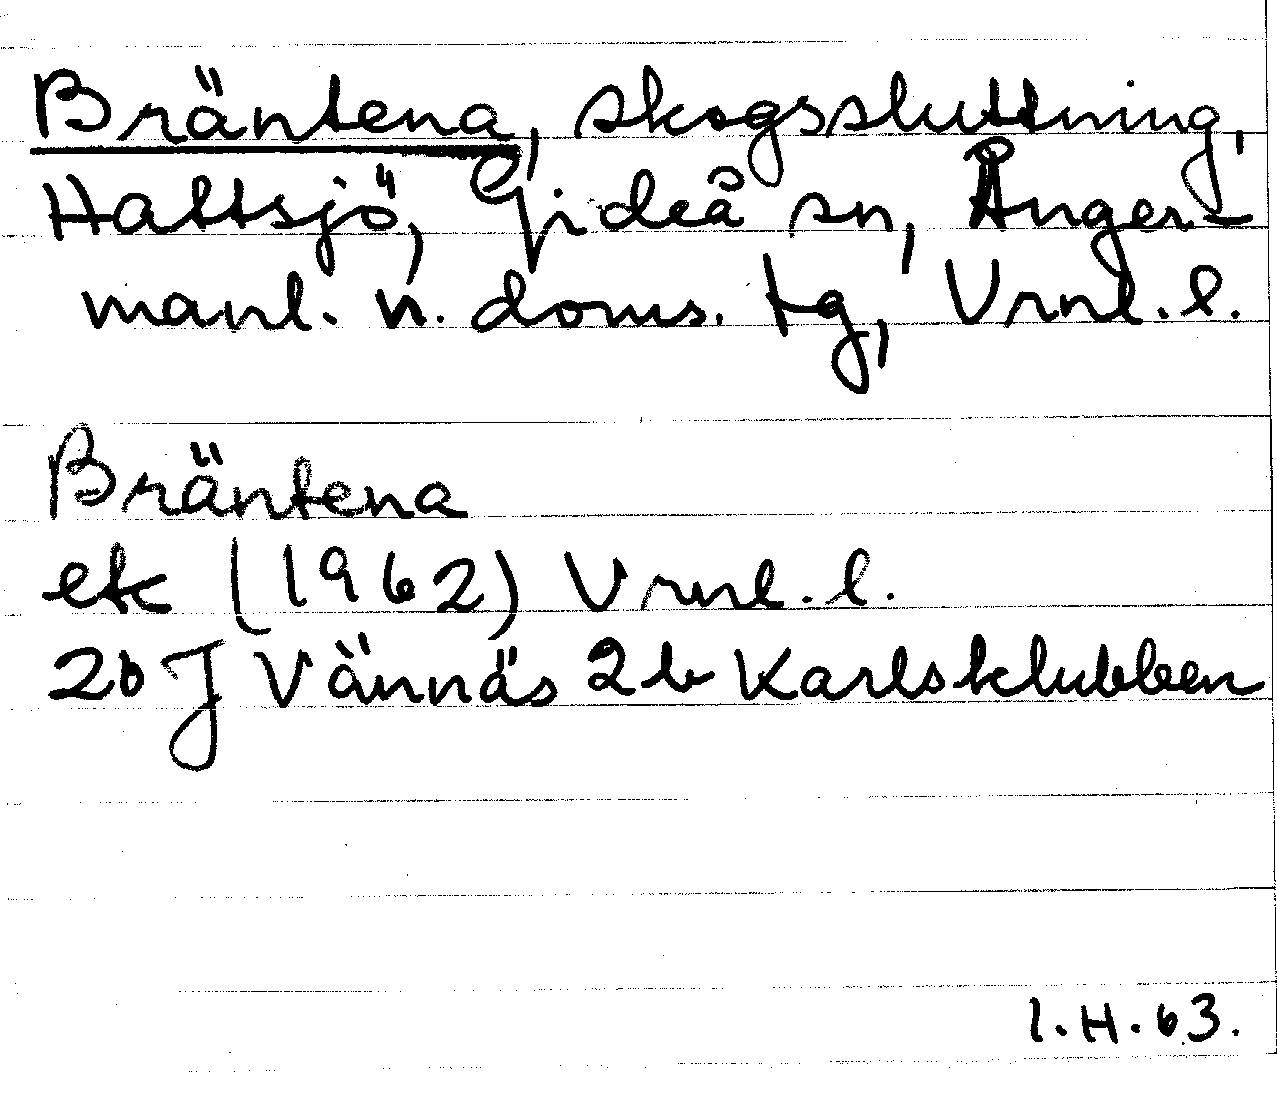 Bräntena, skogssluttning,
Hattsjö, Gideå sn, Ånger-
manl. n. doms. tg, Vrnl. l.
Bräntena
ek (1962) Vrnl. l.
20 J Vännäs 2b Karlsklubben
I.H.63.